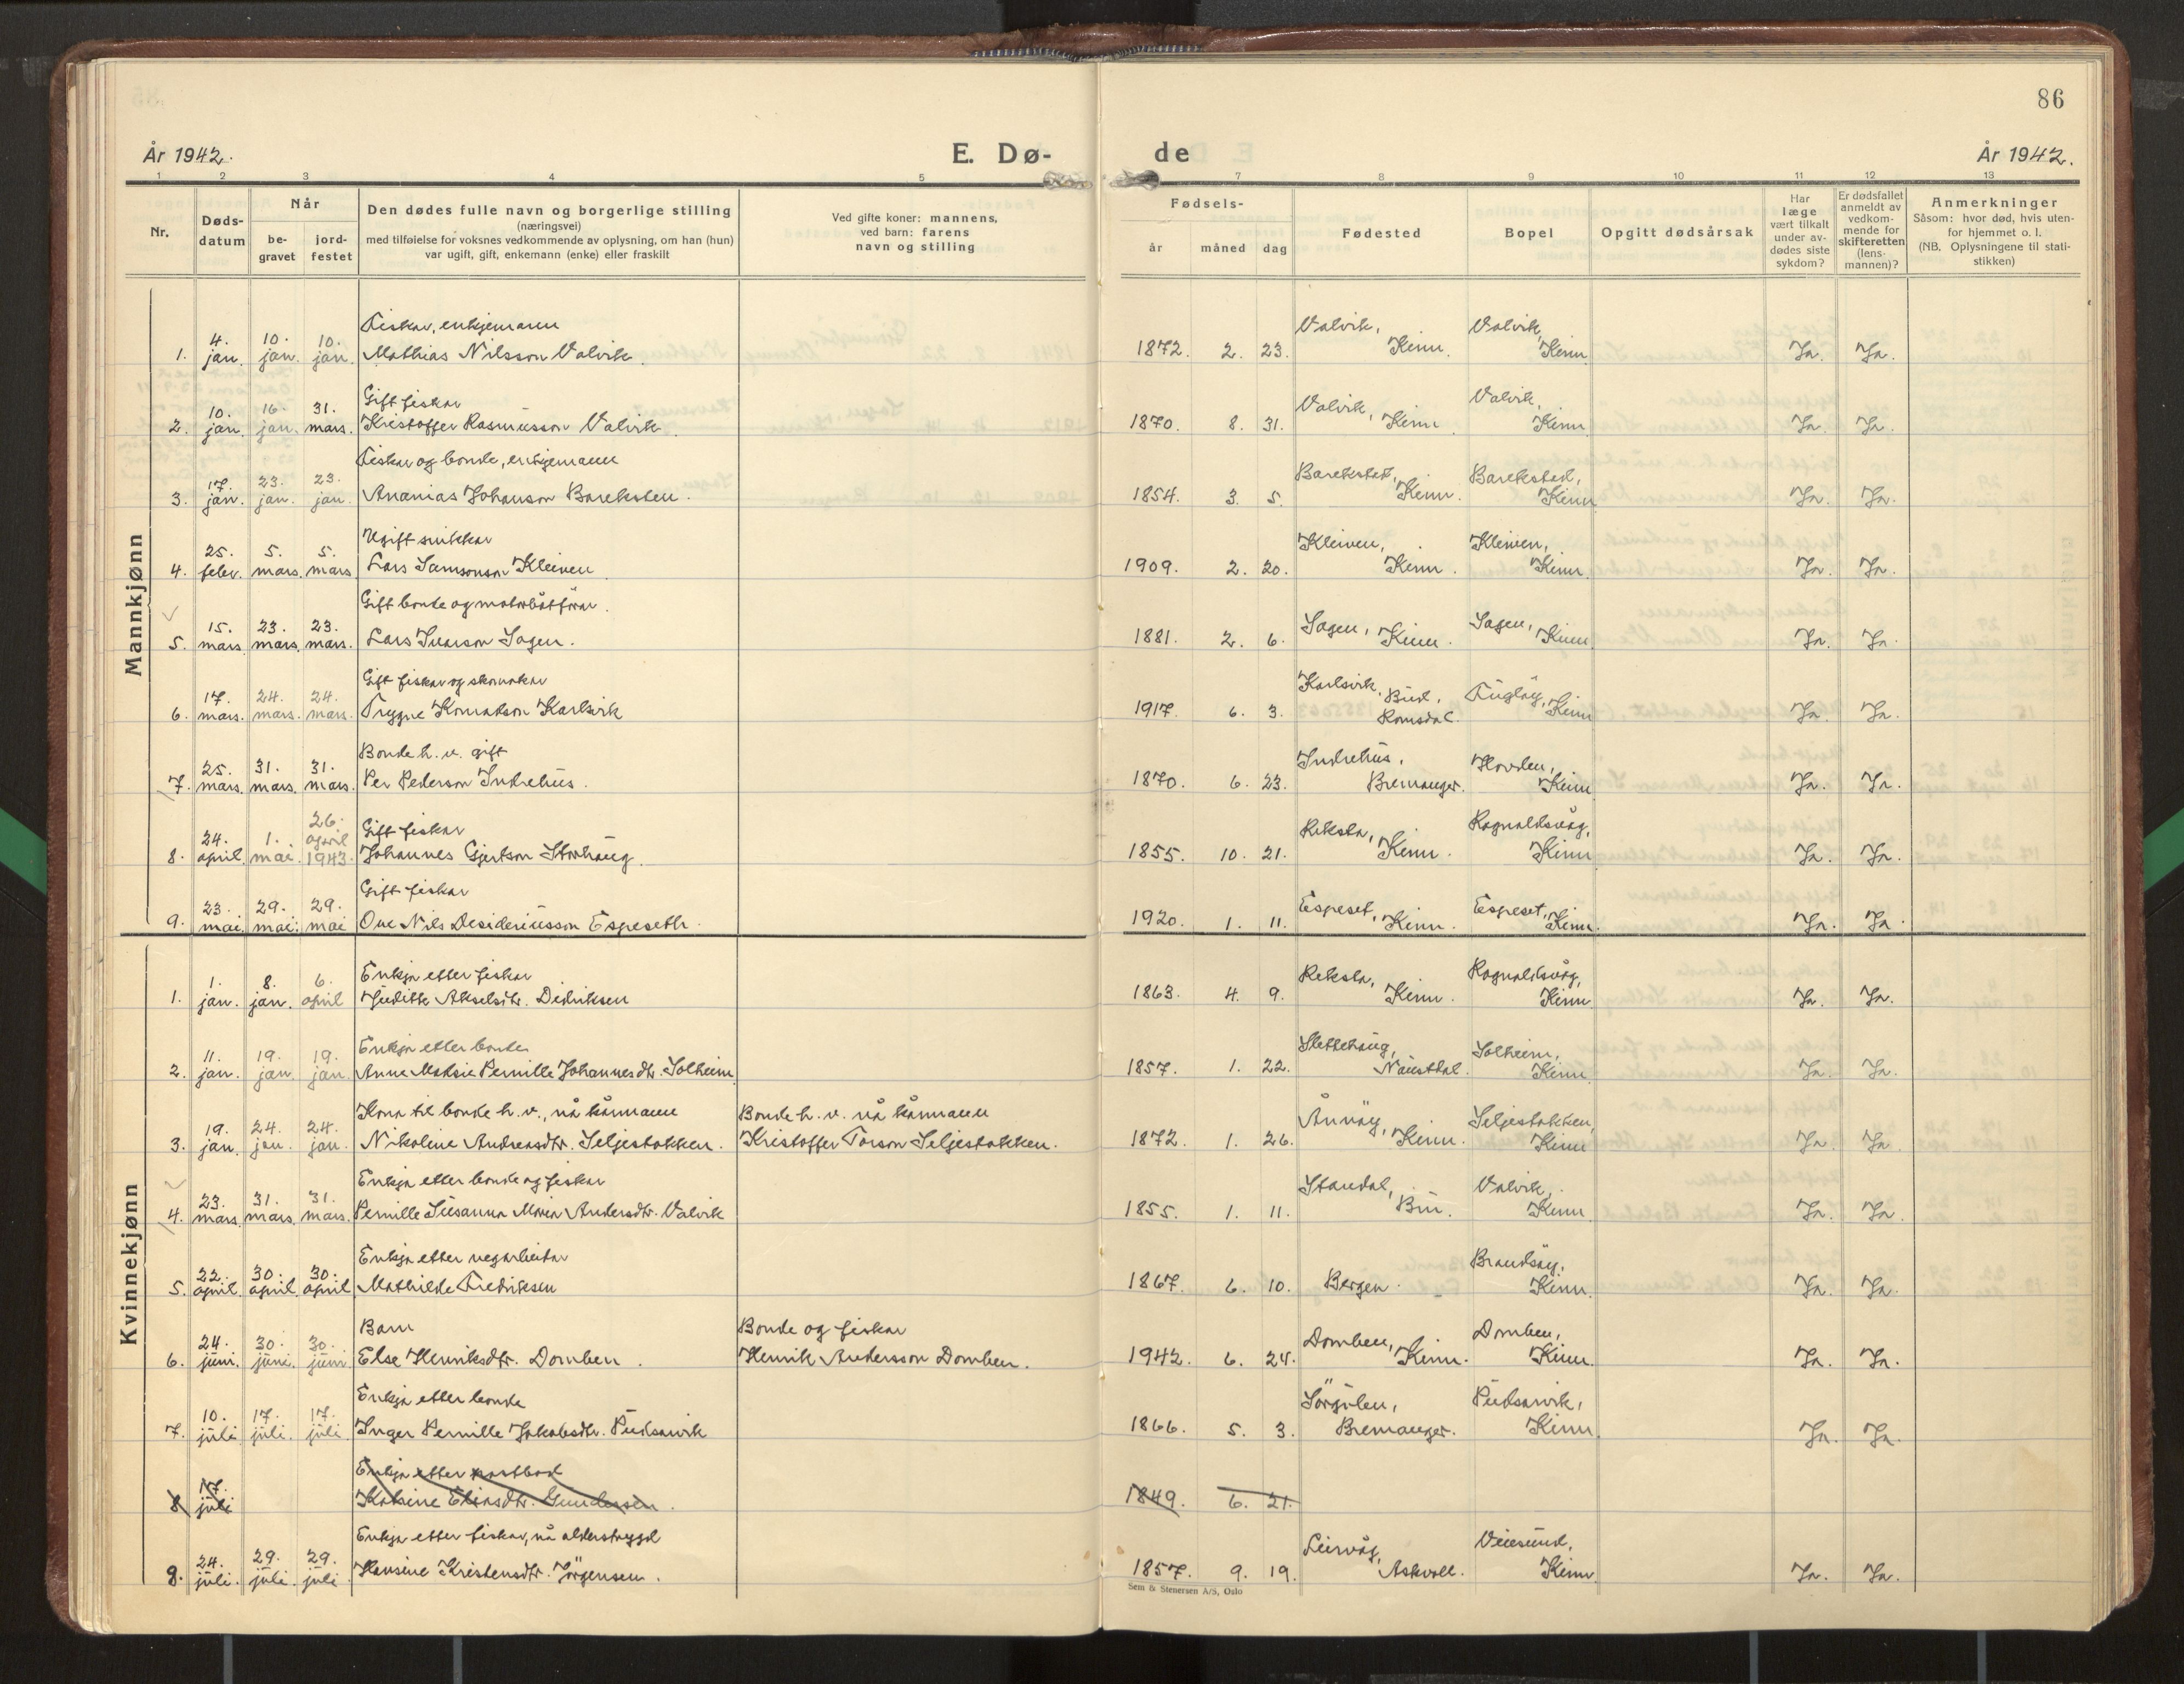 86
År 1942.
E. Dø-
de
År 1942.
1 2 3 4 5 7 8 9 10 11 12 13
Nr.
Døds-
datum
Når
be-
gravet
jord-
festet
Den dødes fulle navn og borgerlige stilling
(næringsvei)
med tilføielse for voksnes vedkommende av oplysning, om han (hun)
var ugift, gift, enkemann (enke) eller fraskilt
Ved gifte koner: mannens,
ved barn: farens
navn og stilling
Fødsels-
år måned dag
Fødested
Bopel
Opgitt dødsårsak
Har
læge
vært tilkalt
under av-
dødes siste
sykdom?
Er dødsfallet
anmeldt av
vedkom-
mende for
skifteretten
(lens-
mannen)?
Anmerkninger
Såsom: hvor død, hvis uten-
for hjemmet o. l.
(NB. Oplysningene til stati-
stikken)
Mannkjønn
4. 10. 10. Fiskar, enkjemann Valvik, Valvik,
1. jan. jan. jan. Mathias Nilsson Valvik. 1872. 2. 23. Kinn. Kinn Ja. Ja.
10. 16. 31. Gift fiskar Valvik, Valvik,
2. jan. jan. mars. Kristoffer Rasmusson Valvik. 1870. 8. 31. Kinn Kinn Ja. Ja.
17. 23. 23. Fiskar og bonde, enkjemann Barekstet, Barekstad,
3. jan. jan. jan. Ananias Johanson Bareksten. 1854. 3. 5. Kinn. Kinn Ja. Ja.
25. 5. 5. Ugift snikkar Kleiven, Kleiven,
4. febr. mars. mars Lars Samsonson Kleiven 1909. 2. 20. Kinn. Kinn. Ja. Ja.
15. 23. 23. Gift bonde og motorbåtförar. Sagen, Sagen,
5. mars. mars. mars. Lars Ivarson Sagen. 1881. 2. 6. Kinn. Kinn Ja. Ja.
17. 24. 24. Gift fiskar og skomakar Karlsvik, Bud, Fuglöy,
6. mars. mars. mars. Trygve Konradson Karlsvik 1917. 6. 3. Romsdal. Kinn Ja. Ja.
25. 31. 31. Bonde h. v. gift Indrehus, Hovden,
7. mars. mars. mars. Per Pederson Indrehus. 1870. 6. 23. Bremanger. Kinn Ja. Ja.
24. 1. 26. april Gift fiskar Reksta, Rognaldsvåg,
8. april. mai. 1943. Johannes Gjertson Storhaug. 1855. 10. 21. Kinn. Kinn Ja. Ja.
23. 29. 29. Gift fiskar Espeset, Espeset,
9. mai. mai. mai Ove Nils Desideriusson Espeseth. 1920. 1. 11. Kinn. Kinn. Ja. Ja.
Kvinnekjønn
1. 8. 6. Enkja etter fiskar Reksta, Rognaldsvåg,
1. jan. jan. april Judithe Akselsdtr. Didriksen 1863. 4. 9. Kinn. Kinn Ja. Ja.
11. 19. 19. Enkja etter bonde Slettehaug, Solheim,
2. jan. jan. jan. Anne Pernille Johannesdtr. Solheim 1857. 1. 22. Naustdal. Kinn Ja. Ja.
19. 24. 24. Kona til bonde h. v., nå kårmann Bonde h. v. nå kårmann Ånnöy, Seljestokken,
3. jan. jan. jan. Nikoline Andreasdtr. Seljestokken. Kristoffer Torson Seljestokken. 1872. 1. 26. Kinn. Kinn Ja. Ja.
23. 31. 31. Enkja etter bonde og fiskar Standal, Valvik,
4. mars. mars. mars. Pernille Susanna Maria Andersdtr. Valvik 1855. 1. 11. Bru. Kinn Ja. Ja.
22. 30. 30. Enkja etter vegarbeidar Brandsöy,
5. april. april. april Mathilde Fredriksen 1867. 6. 10. Bergen. Kinn. Ja. Ja.
24. 30. 30. Barn Bonde og fiskar Domben, Domben,
6. juni. juni. juni. Else Henriksdtr. Domben. Henrik Andersson Domben. 1942. 6. 24. Kinn. Kinn. Ja. Ja.
10. 17. 17. Enkja etter bonde Sörgulen, Pudsarvik,
7. juli. juli. juli. Inger Pernille Jakobsdtr. Pudsarvik 1866. 5. 3. Bremanger. Kinn Ja. Ja.
17. Enkja etter
8 juli Katrine Eliasdtr. Gundersen. 1849. 6. 21.
24. 29. 29. Enkja etter fiskar, nå alderstrygd Leirvåg, Veiesund,
8. juli. juli. juli Hansine Kristensdtr. Jörgensen. 1857. 9. 19. Askvoll. Kinn. Ja. Ja.
Sem & Stenersen A/S, Oslo